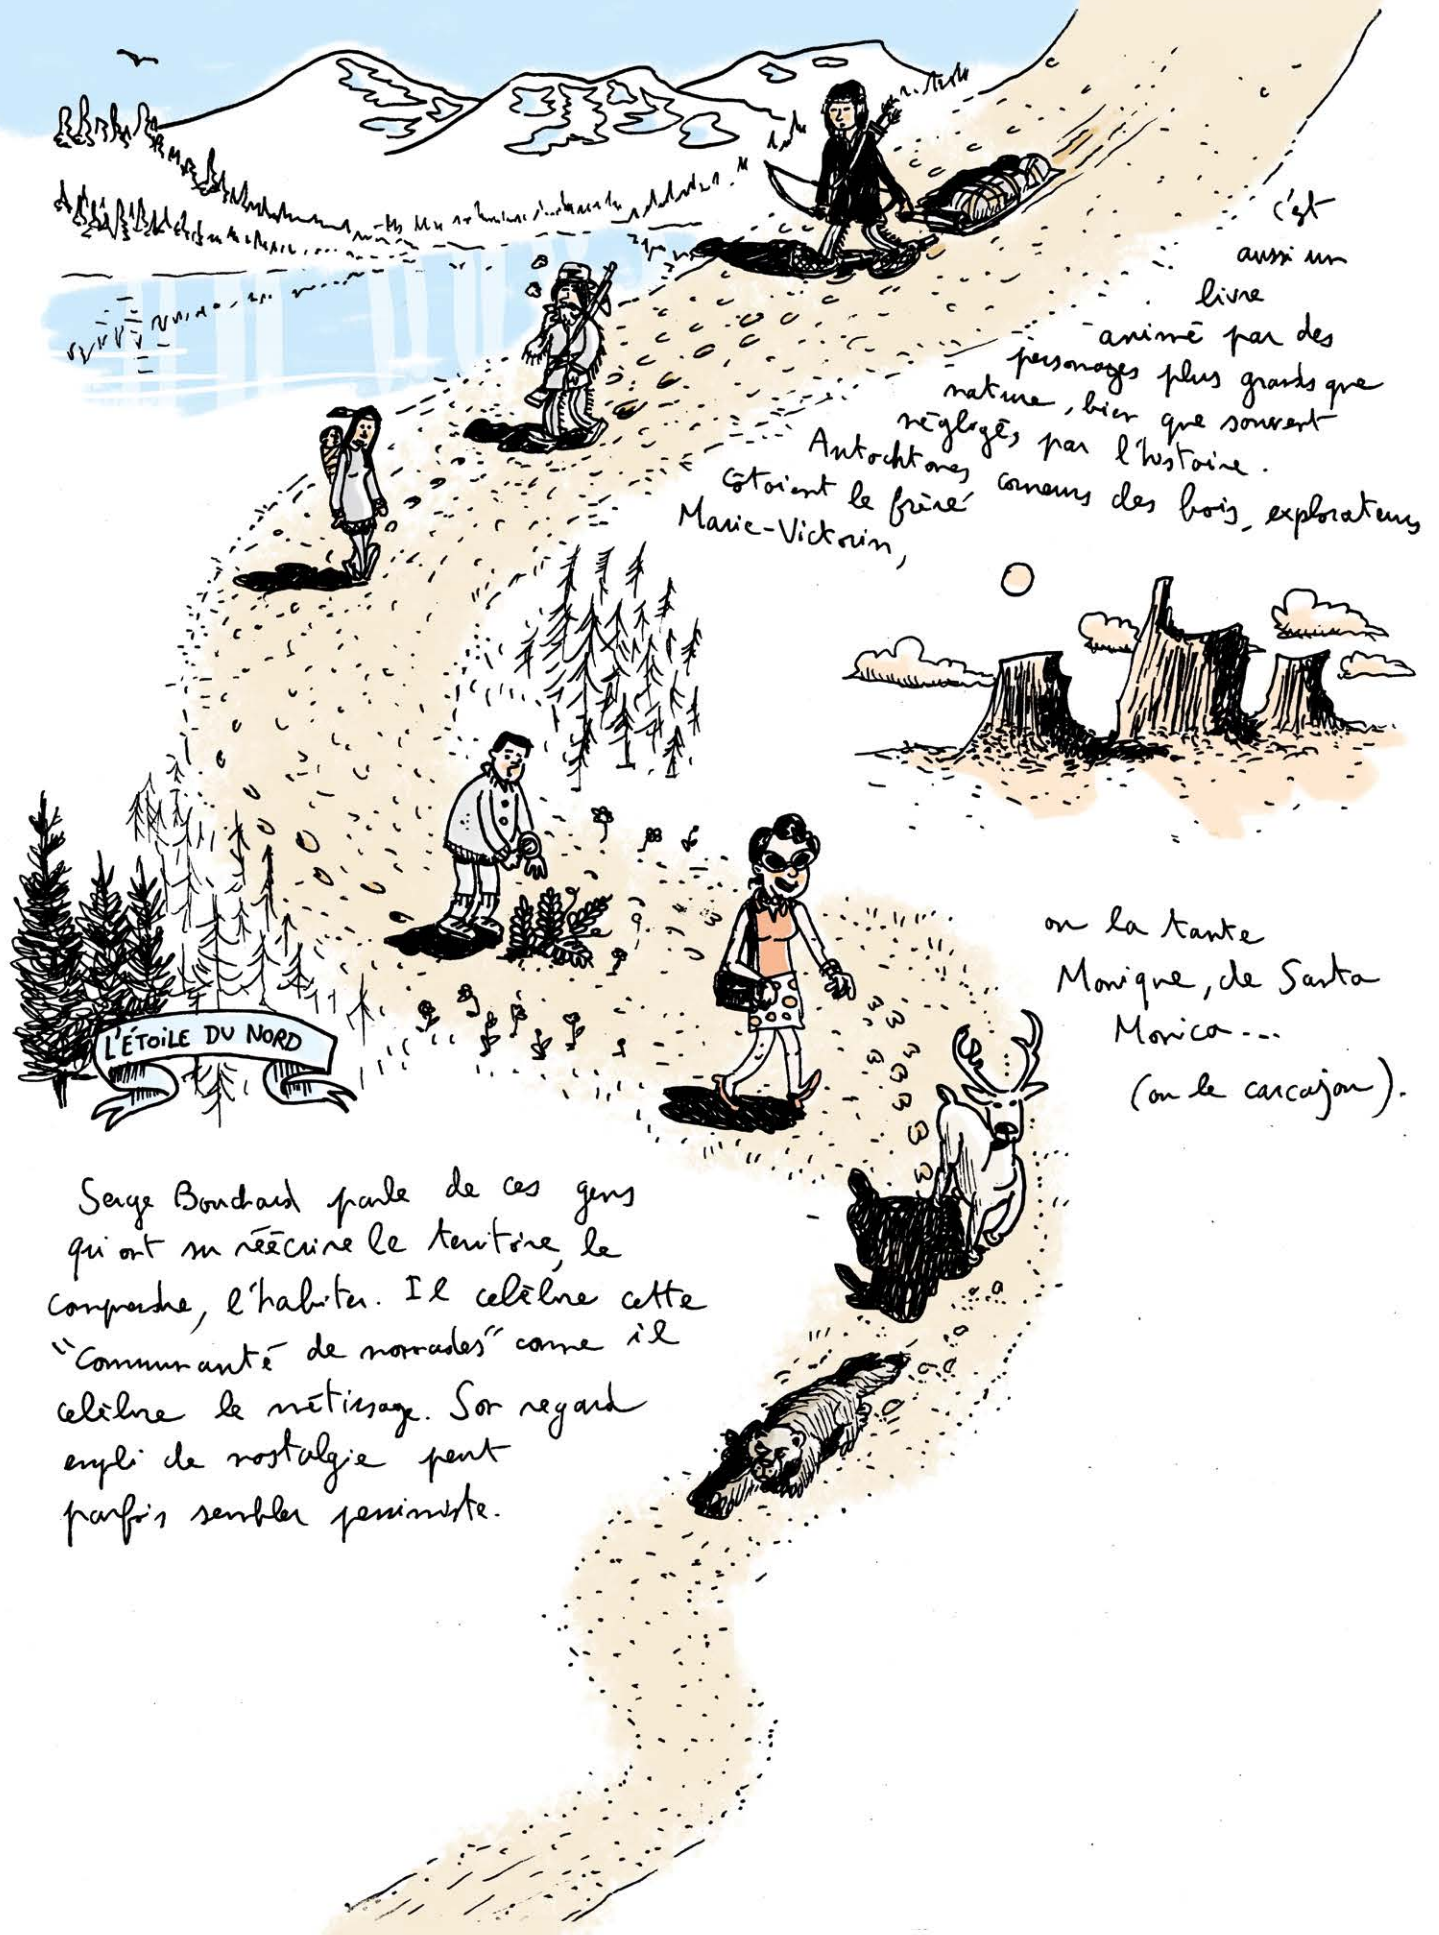 c'est
aussi un
livre
animé par des
personages plus grands que
nature, bien que souvent
négligés par l'histoire.
Autochtones, coureurs des bois, explorateurs
côtoient le frère
Marie-Victorin,
ou la tante
Monique, de Santa
Monica...
(ou le carcajou).
L'ÉTOILE DU NORD
Serge Bouchard parle de ces gens
qui ont su réécrire le territoire, le
comprendre, l'habiter. Il célèbre cette
"Communauté de nomades" comme il
célèbre le métissage. Son regard
empli de nostalgie peut
parfois sembler pessimiste.